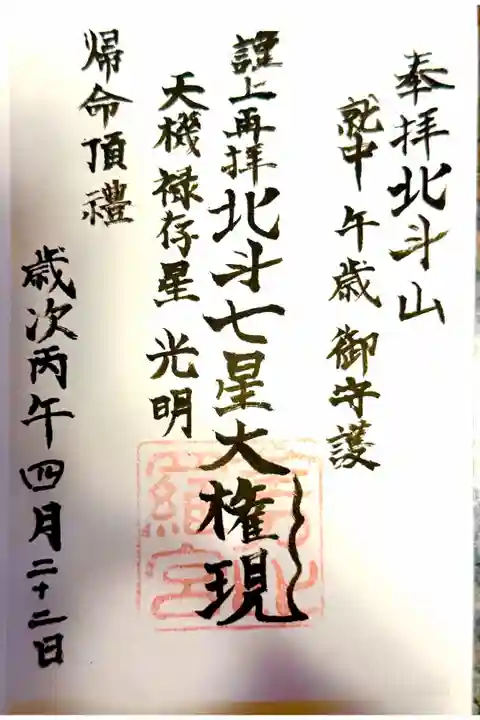 奉拝北斗山
就中午歳御守護
謹上再拝北斗七星大権現
天機禄存星光明
帰命頂禮
歳次丙午四月二十二日